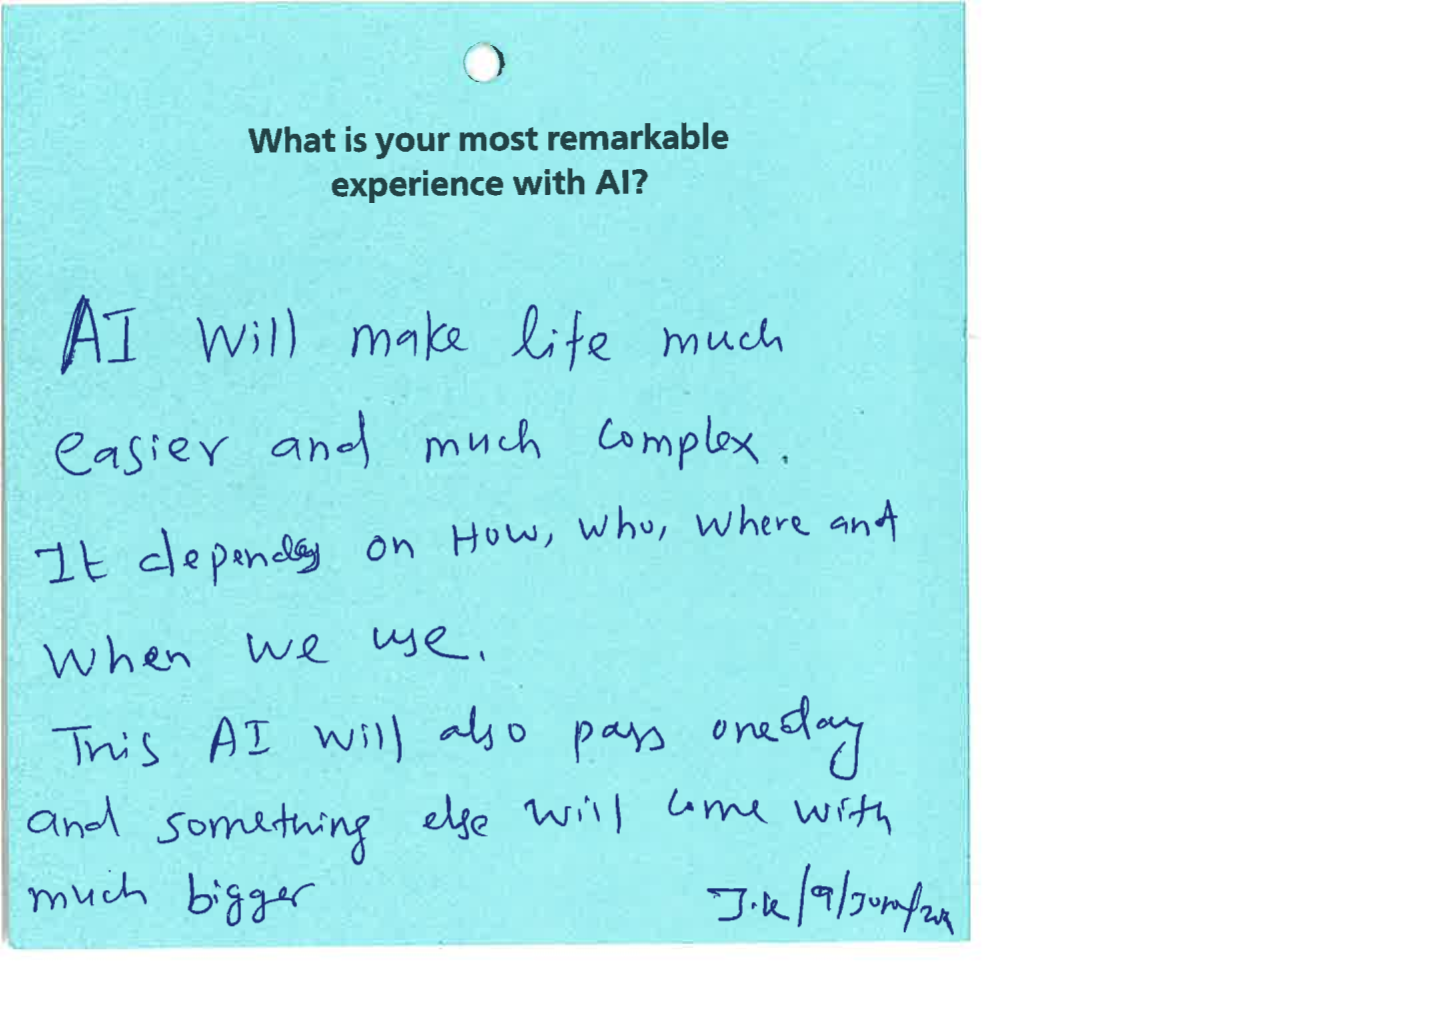 What is your most remarkable
experience with AI?
AI will make life much
easier and much complex.
It depends on How, who, where and
when we use.
This AI will also pass oneday
and something else will come with
much bigger
J.K/9/June/